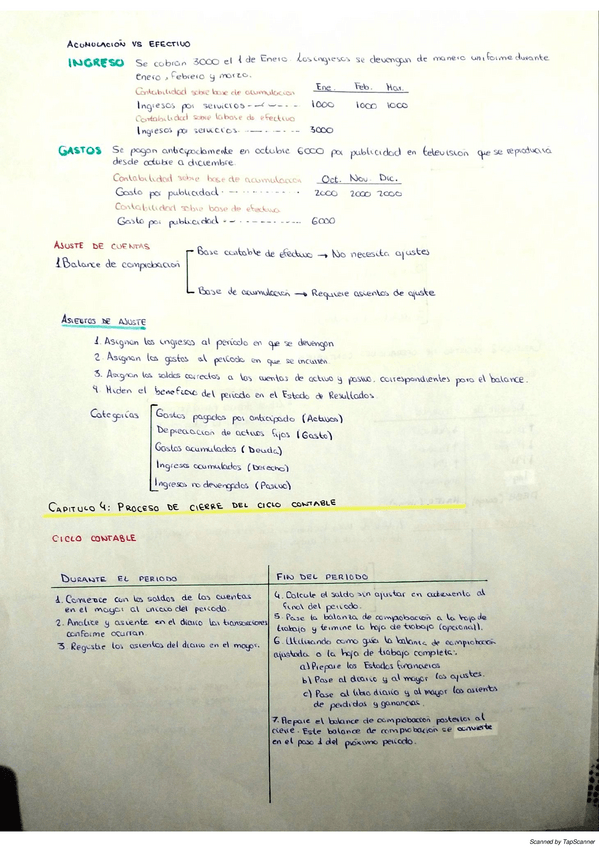 ACUMULACIÓN VS EFECTIVO
INGRESO Se cobran 3000 el 1 de Enero. Los ingresos se devengan de manera uniforme durante
enero, febrero y marzo.
Contabilidad sobre base de acumulación Ene. Feb. Mar.
Ingresos por servicios 1000 1000 1000
Contabilidad sobre la base de efectivo
Ingresos po servicios 3000
GASTOS Se pagan anticipadamente en octubre 6000 por publicidad en television que se reproducirá
desde octubre a diciembre.
Contabilidad sobre base de acumulación Oct. Nov. Dic.
Gasto por publicidad 2000 2000 2000
Contabilidad sobre base de efectivo
Gasto por publicidad 6000
AJUSTE DE CUENTAS
Base contable de efectivo → No necesita ajustes
1 Balance de comprobación
Base de acumulación → Requiere asientos de ajuste
ASIENTOS DE AJUSTE
1. Asignan los ingresos al periodo en que se devengan
2. Asignan los gastos al periodo en que se incurren
3. Asignan los saldos correctos a las cuentas de activo y pasivo, correspondientes para el balance.
4. Miden el beneficio del periodo en el Estado de Resultados.
Categorías
Gastos pagados por anticipado (Activos)
Depreciacion de activos fijos (Gasto)
Gastos acumulados (Deuda)
Ingresos acumulados (Derecho)
Ingresos no devengados (Pasivo)
CAPITULO 4: PROCESO DE CIERRE DEL CICLO CONTABLE
CICLO CONTABLE
DURANTE EL PERIODO
1. Comience con los saldos de las cuentas
en el mayor al inicio del periodo.
2. Analice y asiente en el diario las transacciones
conforme ocurran
3. Registre los asientos del diario en el mayor.
FIN DEL PERIODO
4. Calcule el saldo sin ajustar en cada cuenta al
final del periodo.
5. Pase la balanza de comprobación a la hoja de
trabajo y termine la hoja de trabajo (opcional).
6. Utilizando como guía la balanza de comprobación
ajustada o la hoja de trabajo completa:
a) Prepare los Estados financieros
b) Pase al diario y al mayor los ajustes.
c) Pase al libro diario y al mayor los asientos
de perdidas y ganancias.
7. Prepare el balance de comprobación posterior al
cierre. Este balance de comprobación se convierte
en el paso 1 del próximo periodo.
Scanned by TapScanner